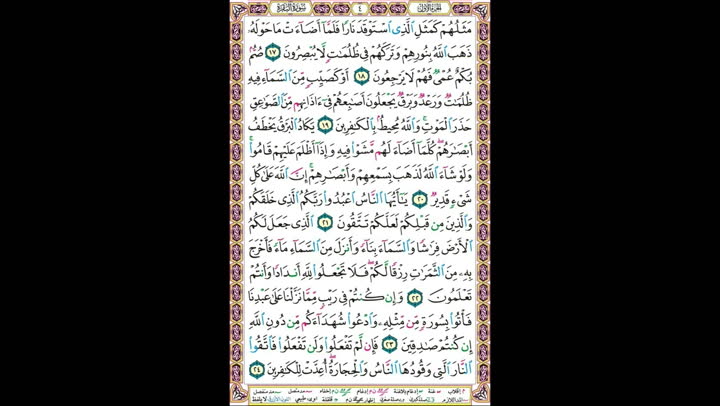 الجزء الأول ٤ سورة البقرة
مَثَلُهُمْ كَمَثَلِ الَّذِى اسْتَوْقَدَ نَارًا فَلَمَّا أَضَاءَتْ مَا حَوْلَهُ
ذَهَبَ اللَّهُ بِنُورِهِمْ وَتَرَكَهُمْ فِى ظُلُمَاتٍ لَّا يُبْصِرُونَ ١٧ صُمٌّ
بُكْمٌ عُمْىٌ فَهُمْ لَا يَرْجِعُونَ ١٨ أَوْ كَصَيِّبٍ مِّنَ السَّمَاءِ فِيهِ
ظُلُمَاتٌ وَرَعْدٌ وَبَرْقٌ يَجْعَلُونَ أَصَابِعَهُمْ فِى ءَاذَانِهِم مِّنَ الصَّوَاعِقِ
حَذَرَ الْمَوْتِ وَاللَّهُ مُحِيطٌ بِالْكَافِرِينَ ١٩ يَكَادُ الْبَرْقُ يَخْطَفُ
أَبْصَارَهُمْ كُلَّمَا أَضَاءَ لَهُم مَّشَوْا فِيهِ وَإِذَا أَظْلَمَ عَلَيْهِمْ قَامُوا
وَلَوْ شَاءَ اللَّهُ لَذَهَبَ بِسَمْعِهِمْ وَأَبْصَارِهِمْ إِنَّ اللَّهَ عَلَى كُلِّ
شَىْءٍ قَدِيرٌ ٢٠ يَاأَيُّهَا النَّاسُ اعْبُدُوا رَبَّكُمُ الَّذِى خَلَقَكُمْ
وَالَّذِينَ مِن قَبْلِكُمْ لَعَلَّكُمْ تَتَّقُونَ ٢١ الَّذِى جَعَلَ لَكُمُ
الْأَرْضَ فِرَاشًا وَالسَّمَاءَ بِنَاءً وَأَنزَلَ مِنَ السَّمَاءِ مَاءً فَأَخْرَجَ
بِهِ مِنَ الثَّمَرَاتِ رِزْقًا لَّكُمْ فَلَا تَجْعَلُوا لِلَّهِ أَندَادًا وَأَنتُمْ
تَعْلَمُونَ ٢٢ وَإِن كُنتُمْ فِى رَيْبٍ مِّمَّا نَزَّلْنَا عَلَى عَبْدِنَا
فَأْتُوا بِسُورَةٍ مِّن مِّثْلِهِ وَادْعُوا شُهَدَاءَكُم مِّن دُونِ اللَّهِ
إِن كُنتُمْ صَادِقِينَ ٢٣ فَإِن لَّمْ تَفْعَلُوا وَلَن تَفْعَلُوا فَاتَّقُوا
النَّارَ الَّتِى وَقُودُهَا النَّاسُ وَالْحِجَارَةُ أُعِدَّتْ لِلْكَافِرِينَ ٢٤